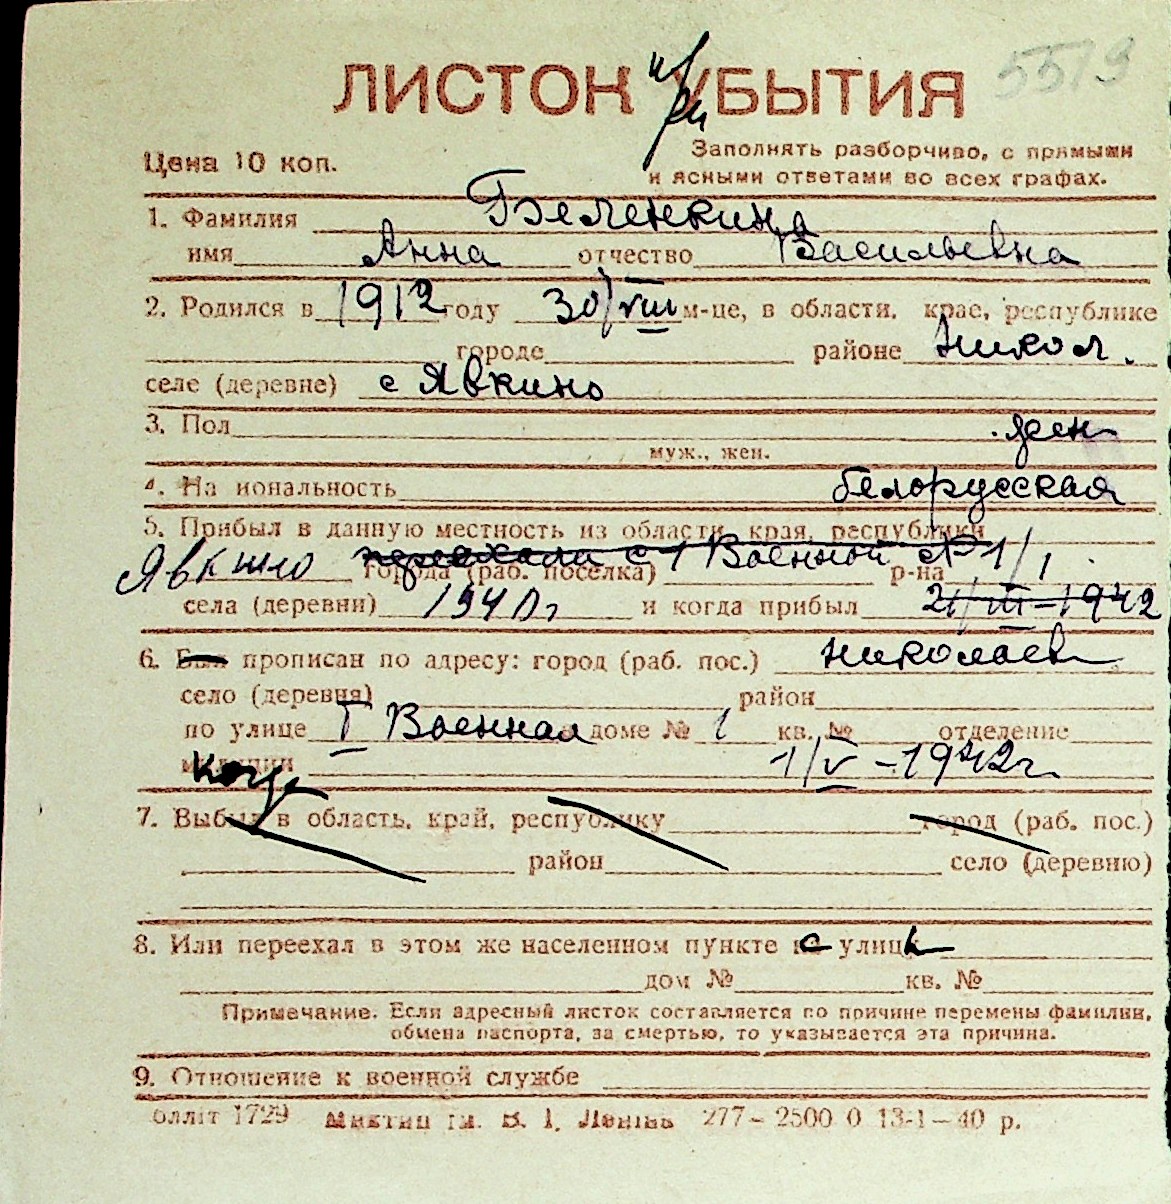 5519
ЛИСТОК при УБЫТИЯ
Цена 10 коп.
Заполнять разборчиво, с прямыми
и ясными ответами во всех графах.
1. Фамилия Беленкина
имя Анна отчество Васильевна
2. Родился в 1912 году 30/VIII м-це, в области, крае, республике
городе районе Никол.
селе (деревне) с Явкино
3. Пол жен
муж., жен.
4. На иональность белорусская
5. Прибыл в данную местность из области, края, республики
Явкино переехала с 1 Военной № 1/1
города (раб. поселка) р-на
села (деревни) 1940 г и когда прибыл 21/III-1942
6. Был прописан по адресу: город (раб. пос.) Николаев
село (деревня) район
по улице I Военная доме № 1 кв. № отделение
милиции 1/V-1942 г.
когда
7. Выбыл в область, край, республику город (раб. пос.)
район село (деревню)
8. Или переехал в этом же населенном пункте с улиц
дом № кв. №
Примечание. Если адресный листок составляется по причине перемены фамилии,
обмена паспорта, за смертью, то указывается эта причина.
9. Отношение к военной службе
олліт 1729 ім. В. І. Леніна 277-2500 0 13-1-40 р.